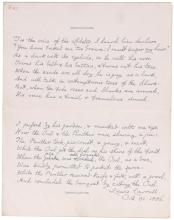 'Tis the voice of the Lobster, I heard him declare
"You have baked me too brown: I must sugar my hair."
As a duck with its eyelids, so he with his nose
Trims his belt & his buttons, & turns out his toes.
When the sands are all dry, he is gay as a lark,
And will talk in contemptuous tones of the Shark:
But, when the tide rises and Sharks are around,
His voice has a timid & tremulous sound.
I passed by his garden, & marked with one eye
How the Owl & the Panther were sharing a pie:
The Panther took pie-crust, & gravy, & meat,
While the Owl got the dish as his share of the treat.
When the
the Owl, as a boon,
Was kindly permitted to pocket the spoon:
While the Panther received knife & fork with a growl,
And concluded the banquet by eating the Owl.
Lewis Carroll
Oct. 31. 1886